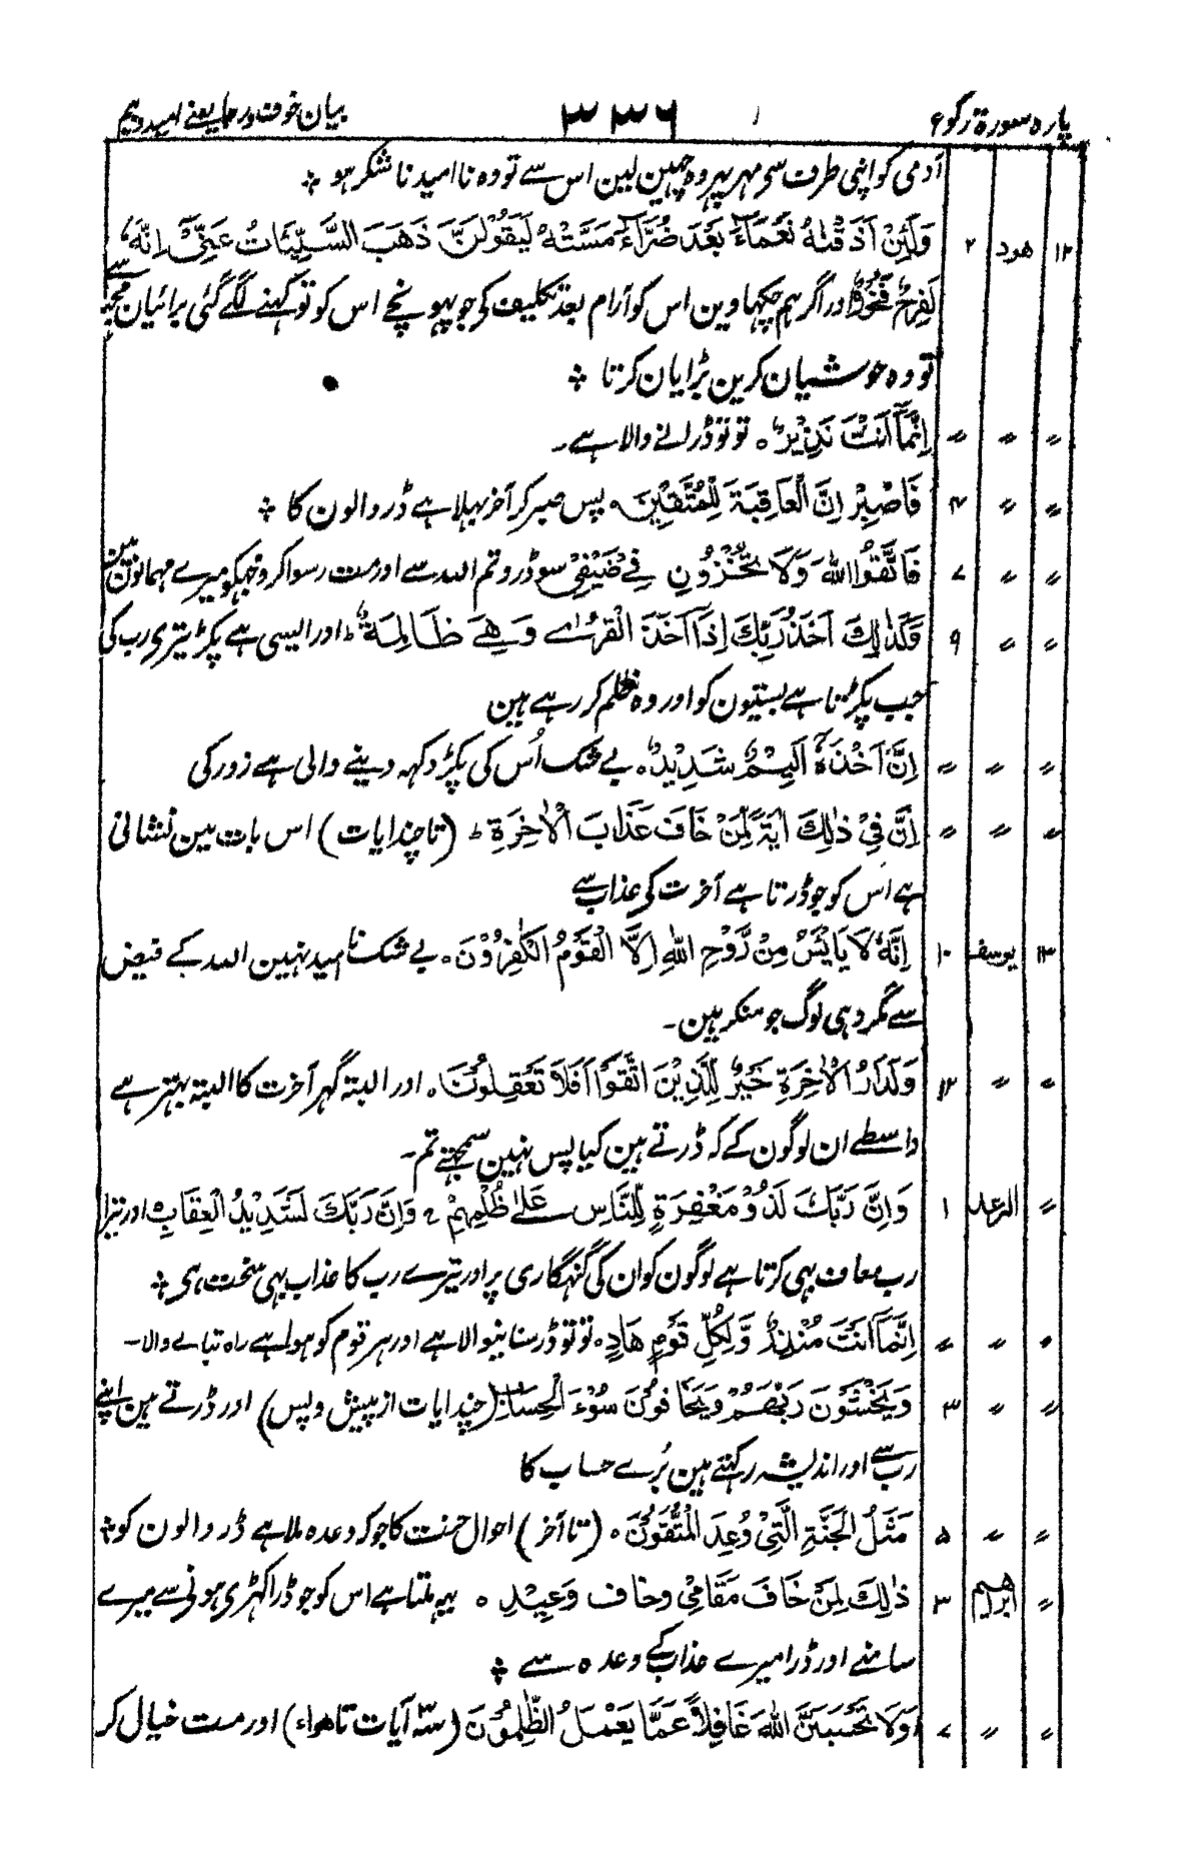 پارہ سورۃ رکوع ۳۳۶ بیان خوف ورجا یعنے امید وبیم
آدمی کو اپنی طرف سے مہر پہر وہ چہین لین اس سے تو وہ نا امید ناشکر ہو ؞
۱۲ ھود ۲ وَلَئِنْ اَذَقْنٰهُ نَعْمَآءَ بَعْدَ ضَرَّآءَ مَسَّتْهُ لَيَقُوْلَنَّ ذَهَبَ السَّيِّئَاتُ عَنِّیْ ؕ اِنَّهٗ
لَفَرِحٌ فَخُوْرٌ اور اگر ہم چکہاوین اس کو آرام بعد تکلیف کی جو پہونچے اس کو تو کہنے لگے گئی برائیان مجہ سے
تو وہ خوشیان کرین بڑایان کرتا ؞
〃 〃 〃 اِنَّمَآ اَنْتَ نَذِيْرٌ ۰ تو تو ڈرانے والا ہے۔
〃 〃 ۴ فَاصْبِرْ اِنَّ الْعَاقِبَةَ لِلْمُتَّقِيْنَ ۰ پس صبر کر آخر بہلا ہے ڈر والون کا ؞
〃 〃 ۷ فَاتَّقُوا اللهَ وَلَا تُخْزُوْنِ فِیْ ضَيْفِیْ سو ڈرو تم اللہ سے اور مت رسوا کرو مجہکو میرے مہمانون مین
〃 〃 ۹ وَكَذٰلِكَ اَخْذُ رَبِّكَ اِذَآ اَخَذَ الْقُرٰی وَهِیَ ظَالِمَةٌ ؕ اور ایسی ہے پکڑ تیری رب کی
جب پکڑتا ہے بستیون کو اور وہ ظلم کر رہے ہین
〃 〃 〃 اِنَّ اَخْذَهٗٓ اَلِيْمٌ شَدِيْدٌ ۰ بے شک اُس کی پکڑ دکہہ دینے والی ہے زور کی
〃 〃 〃 اِنَّ فِیْ ذٰلِكَ اٰيَةً لِّمَنْ خَافَ عَذَابَ الْاٰخِرَةِ ؕ (تا چند ایات) اس بات مین نشانی
ہے اُس کو جو ڈرتا ہے آخرت کی عذاب سے
۱۳ یوسف ۱۰ اِنَّهٗ لَا يَايْئَسُ مِنْ رَّوْحِ اللهِ اِلَّا الْقَوْمُ الْكٰفِرُوْنَ ۰ بے شک نا امید نہین اللہ کے فیض
سے مگر وہی لوگ جو منکر ہین۔
〃 〃 ۱۲ وَلَدَارُ الْاٰخِرَةِ خَيْرٌ لِّلَّذِيْنَ اتَّقَوْا اَفَلَا تَعْقِلُوْنَ ۰ اور البتہ گہر آخرت کا البتہ بہتر ہے
واسطے ان لوگون کے کہ ڈرتے ہین کیا پس نہین سمجہتے تم۔
〃 الرعد ۱ وَاِنَّ رَبَّكَ لَذُوْ مَغْفِرَةٍ لِّلنَّاسِ عَلٰی ظُلْمِهِمْ ۚ وَاِنَّ رَبَّكَ لَشَدِيْدُ الْعِقَابِ ۰ اور تیرا
رب معاف بہی کرتا ہے لوگون کو ان کی گنہگاری پر اور تیرے رب کا عذاب بہی سخت ہی ؞
〃 〃 〃 اِنَّمَآ اَنْتَ مُنْذِرٌ وَّلِكُلِّ قَوْمٍ هَادٍ ۰ تو تو ڈر سنانیوالا ہے اور ہر قوم کو ہوا ہے راہ بتانے والا۔
〃 〃 ۳ وَيَخْشَوْنَ رَبَّهُمْ وَيَخَافُوْنَ سُوْٓءَ الْحِسَابِ (چند ایات از پیش و پس) اور ڈرتے ہین اپنے
رب سے اور اندیشہ رکہتے ہین بُرے حساب کا
〃 〃 ۵ مَثَلُ الْجَنَّةِ الَّتِیْ وُعِدَ الْمُتَّقُوْنَ ۰ (تا آخر) احوال جنت کا جو کہ وعدہ ملا ہے ڈر والون کو ؞
〃 ابراہیم ۳ ذٰلِكَ لِمَنْ خَافَ مَقَامِیْ وخاف وَعِيْدِ ۰ یہہ ملتا ہے اس کو جو ڈرا کہڑی ہونی سے میرے
سامنے اور ڈرا میرے عذاب کے وعدہ سے ؞
〃 〃 ۷ وَلَا تَحْسَبَنَّ اللهَ غَافِلًا عَمَّا يَعْمَلُ الظّٰلِمُوْنَ (سہ آیات تا هواء) اور مت خیال کر